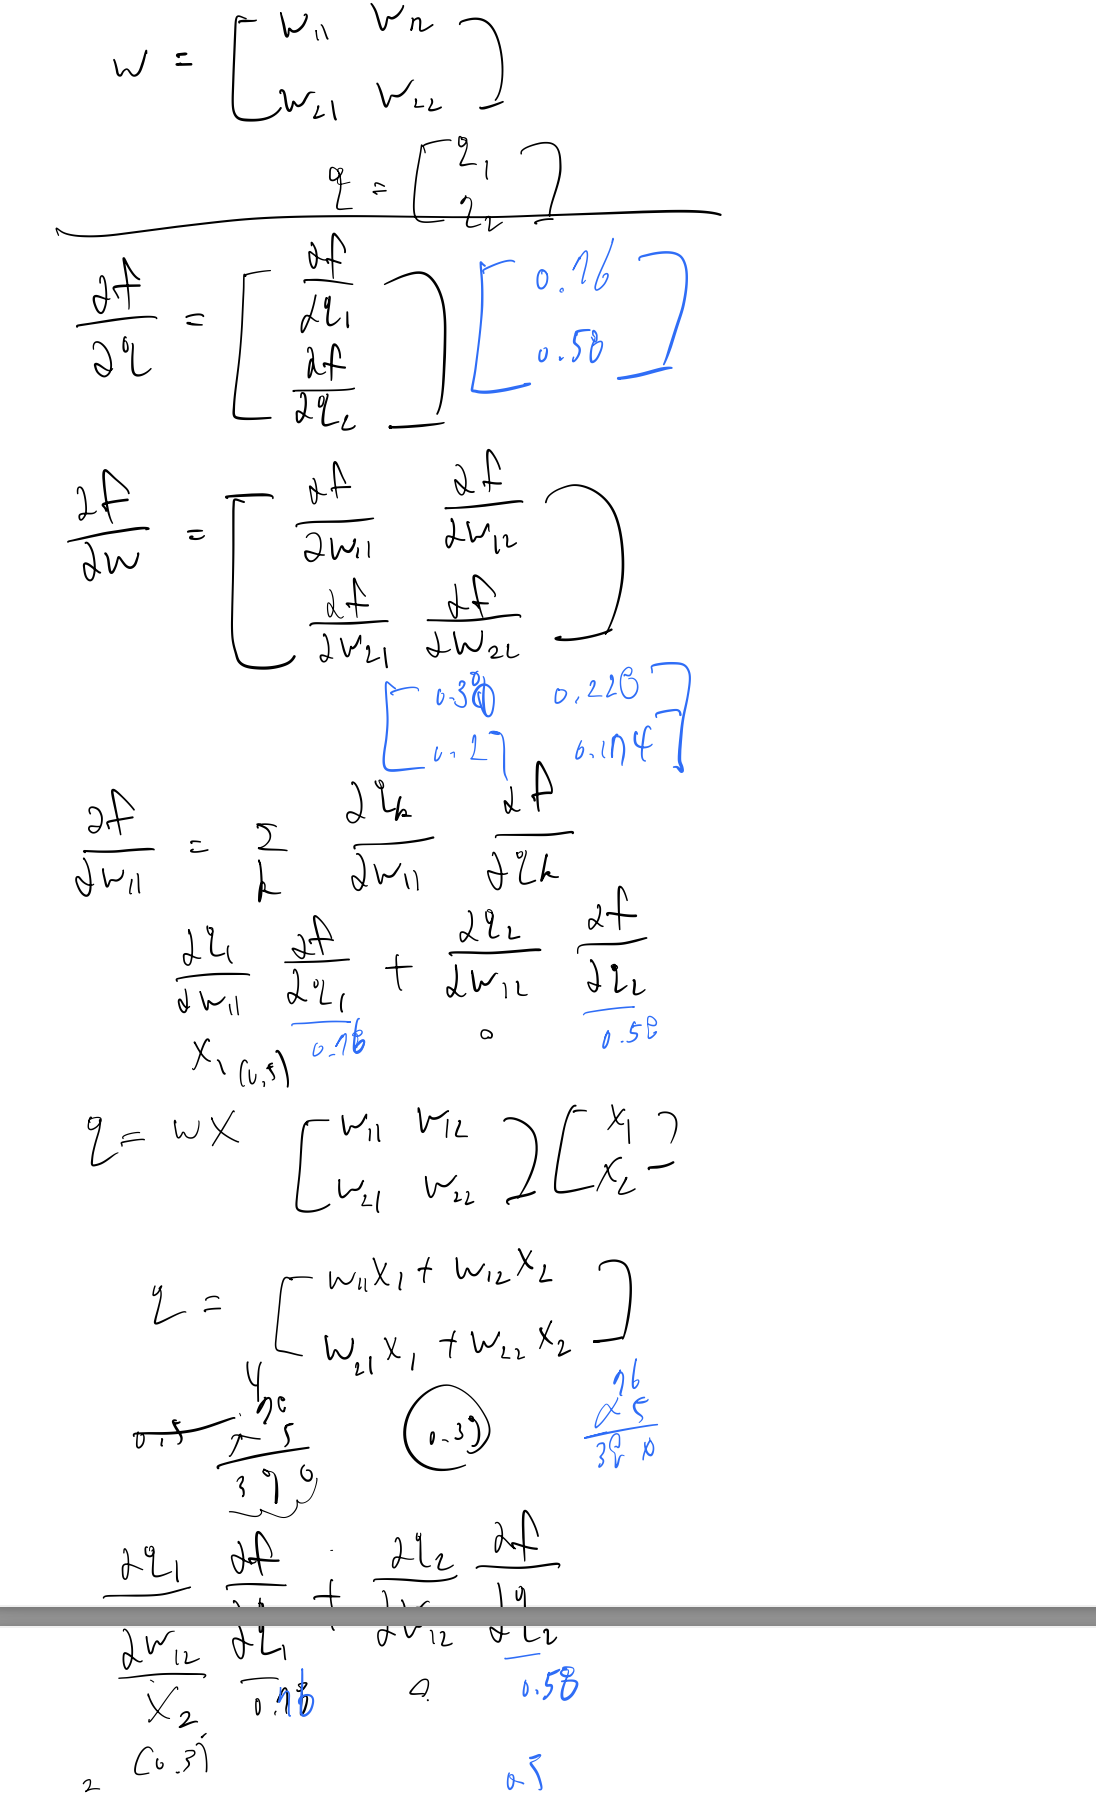 w = [ w₁₁ w₁₂
w₂₁ w₂₂ ]
q = [ q₁
q₂ ]
∂f/∂q = [ ∂f/∂q₁
∂f/∂q₂ ] [ 0.76
0.58 ]
∂f/∂w = [ ∂f/∂w₁₁ ∂f/∂w₁₂
∂f/∂w₂₁ ∂f/∂w₂₂ ]
[ 0.38 0.228
0.27 0.174 ]
∂f/∂w₁₁ = Σ k ∂qₖ/∂w₁₁ ∂f/∂qₖ
∂q₁/∂w₁₁ ∂f/∂q₁ + ∂q₂/∂w₁₂ ∂f/∂q₂
x₁ (0.5) 0.76 0 0.58
q = wx [ w₁₁ w₁₂
w₂₁ w₂₂ ] [ x₁
x₂ ]
q = [ w₁₁x₁ + w₁₂x₂
w₂₁x₁ + w₂₂x₂ ]
4
0.5 78 0.39 76
x 5 x 5
390 380
∂q₁/∂w₁₂ ∂f/∂q₁ + ∂q₂/∂w₁₂ ∂f/∂q₂
x₂ 0.76 0. 0.58
(0.3)